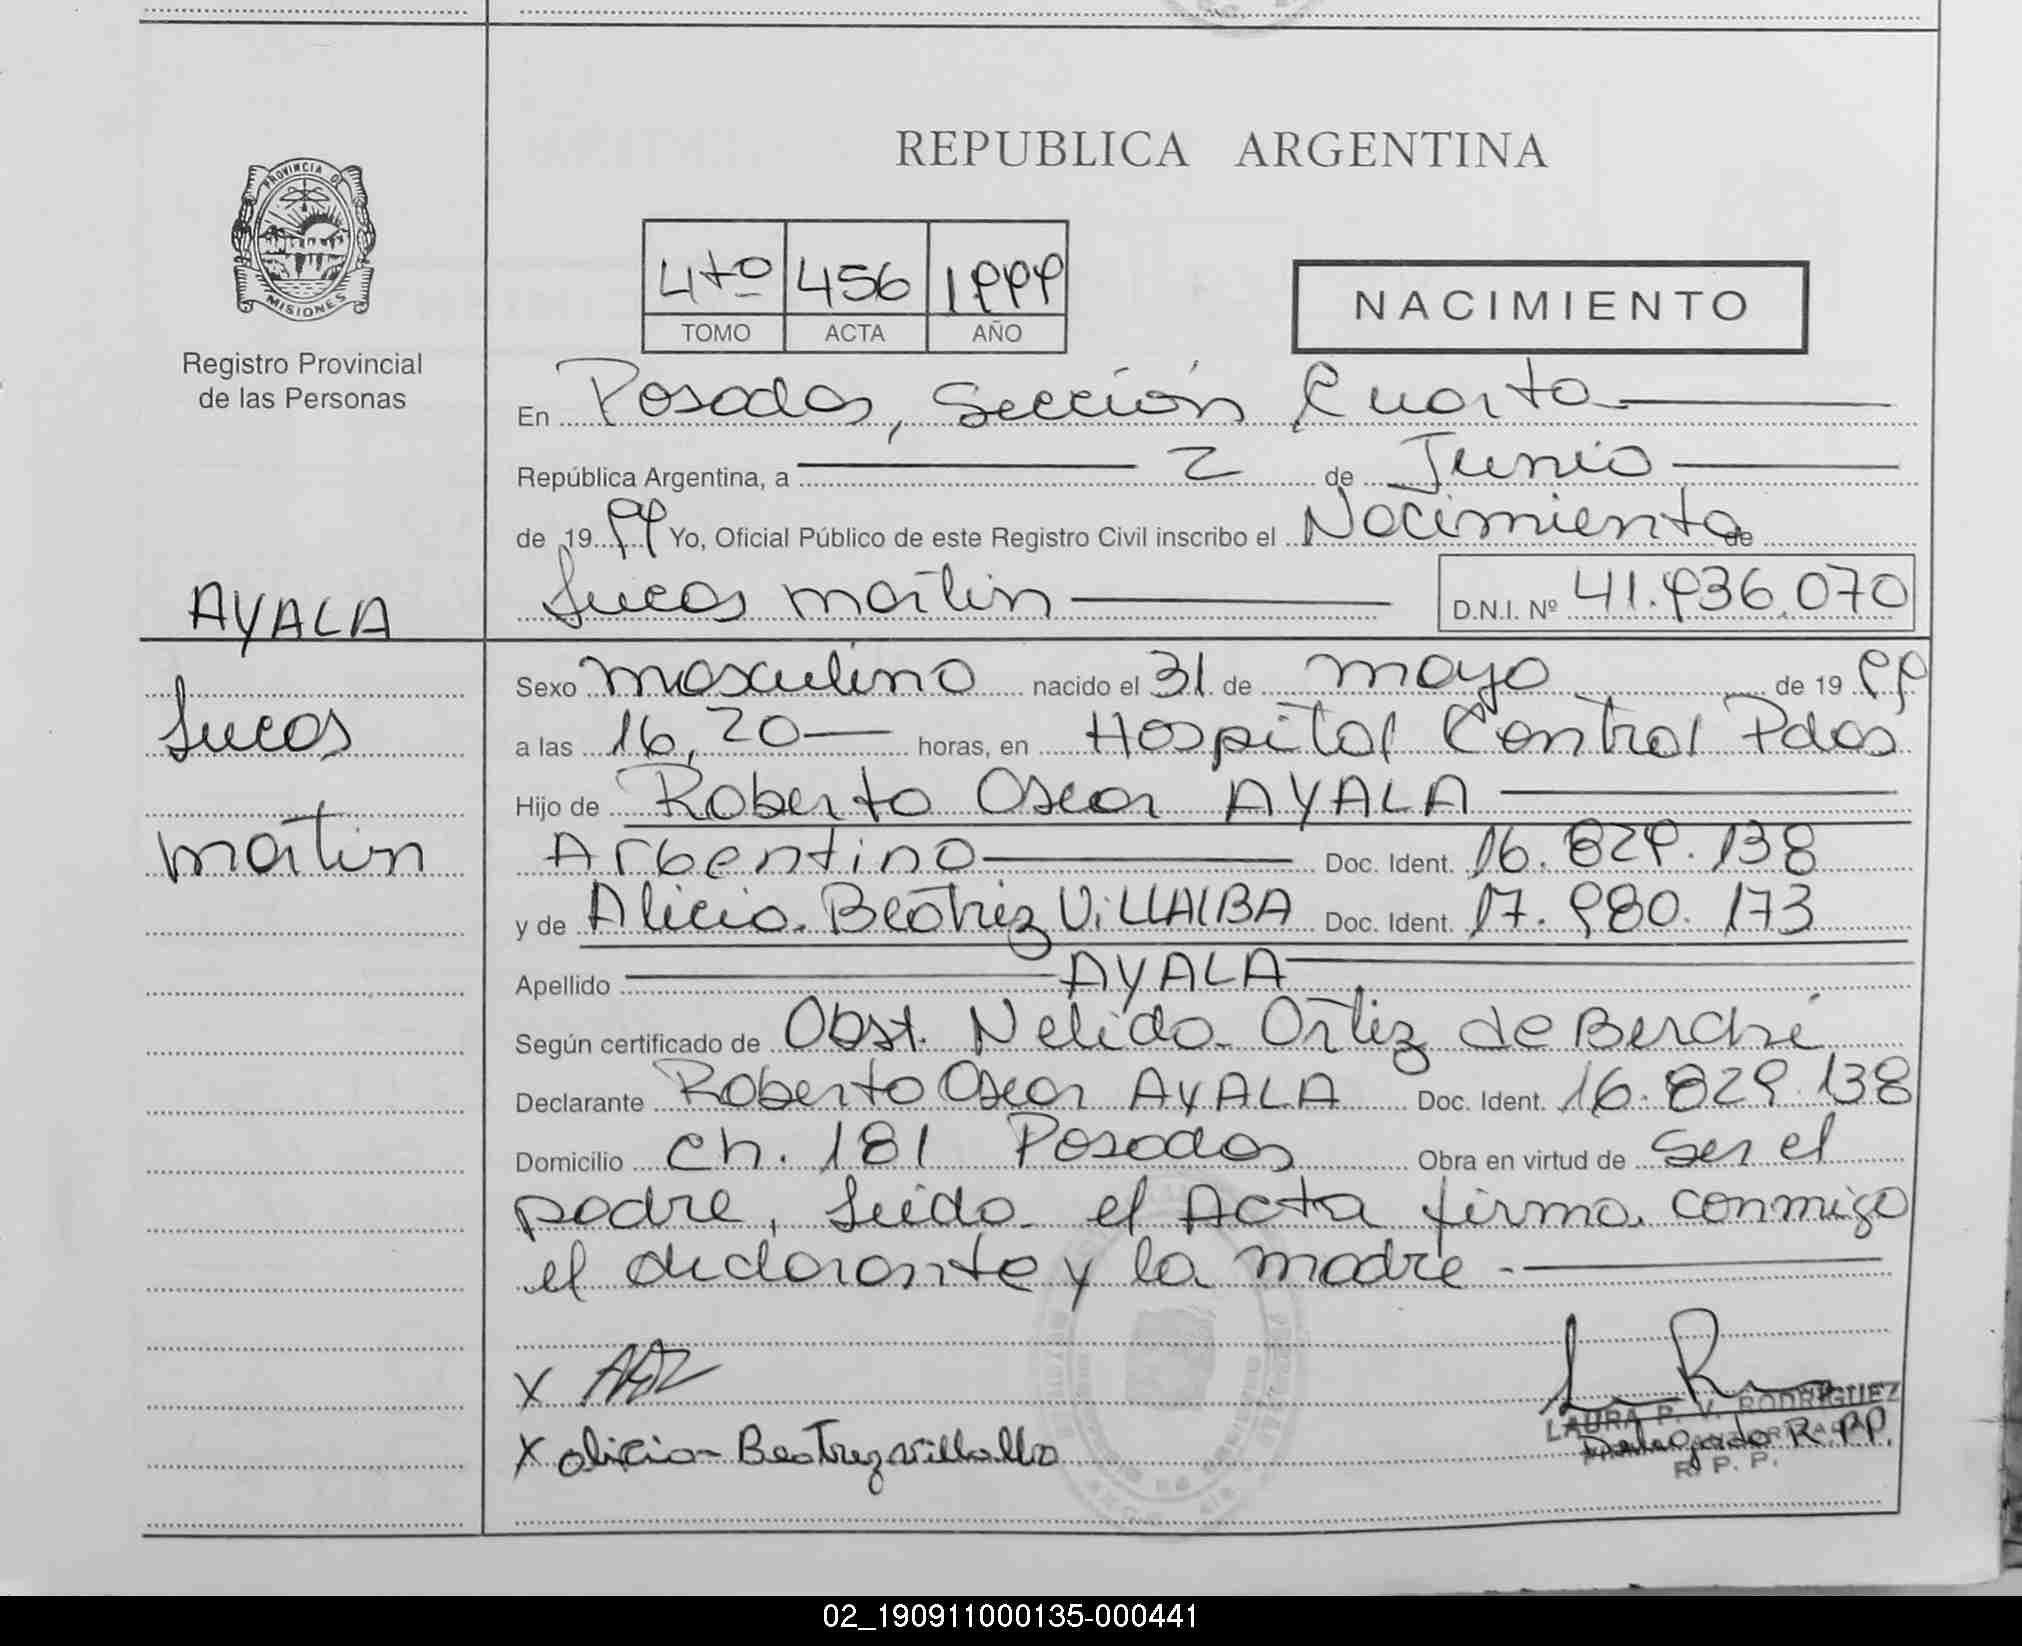 REPUBLICA ARGENTINA
PROVINCIA DE
MISIONES
Registro Provincial
de las Personas
4to 456 1999
TOMO ACTA AÑO
NACIMIENTO
En Posadas, Sección Cuarta
República Argentina, a 2 de Junio
de 1999 Yo, Oficial Público de este Registro Civil inscribo el Nacimiento de
Lucas Martin D.N.I. Nº 41.936.070
AYALA
Lucas
Martin
Sexo masculino nacido el 31 de mayo de 1999
a las 16,20 horas, en Hospital Central Pdas
Hijo de Roberto Oscar AYALA
Argentino Doc. Ident. 16.829.138
y de Alicia Beatriz ViLLALBA Doc. Ident. 17.980.173
Apellido AYALA
Según certificado de Obst. Nelida Ortiz de Berché
Declarante Roberto Oscar AYALA Doc. Ident. 16.829.138
Domicilio Ch. 181 Posadas Obra en virtud de ser el
padre, Leida el Acta firma conmigo
el declarante y la madre.-
X
X Alicia Beatriz Villalba
LAURA P. V. RODRIGUEZ
Delegada R.P.P.
R. P. P.
02_190911000135-000441